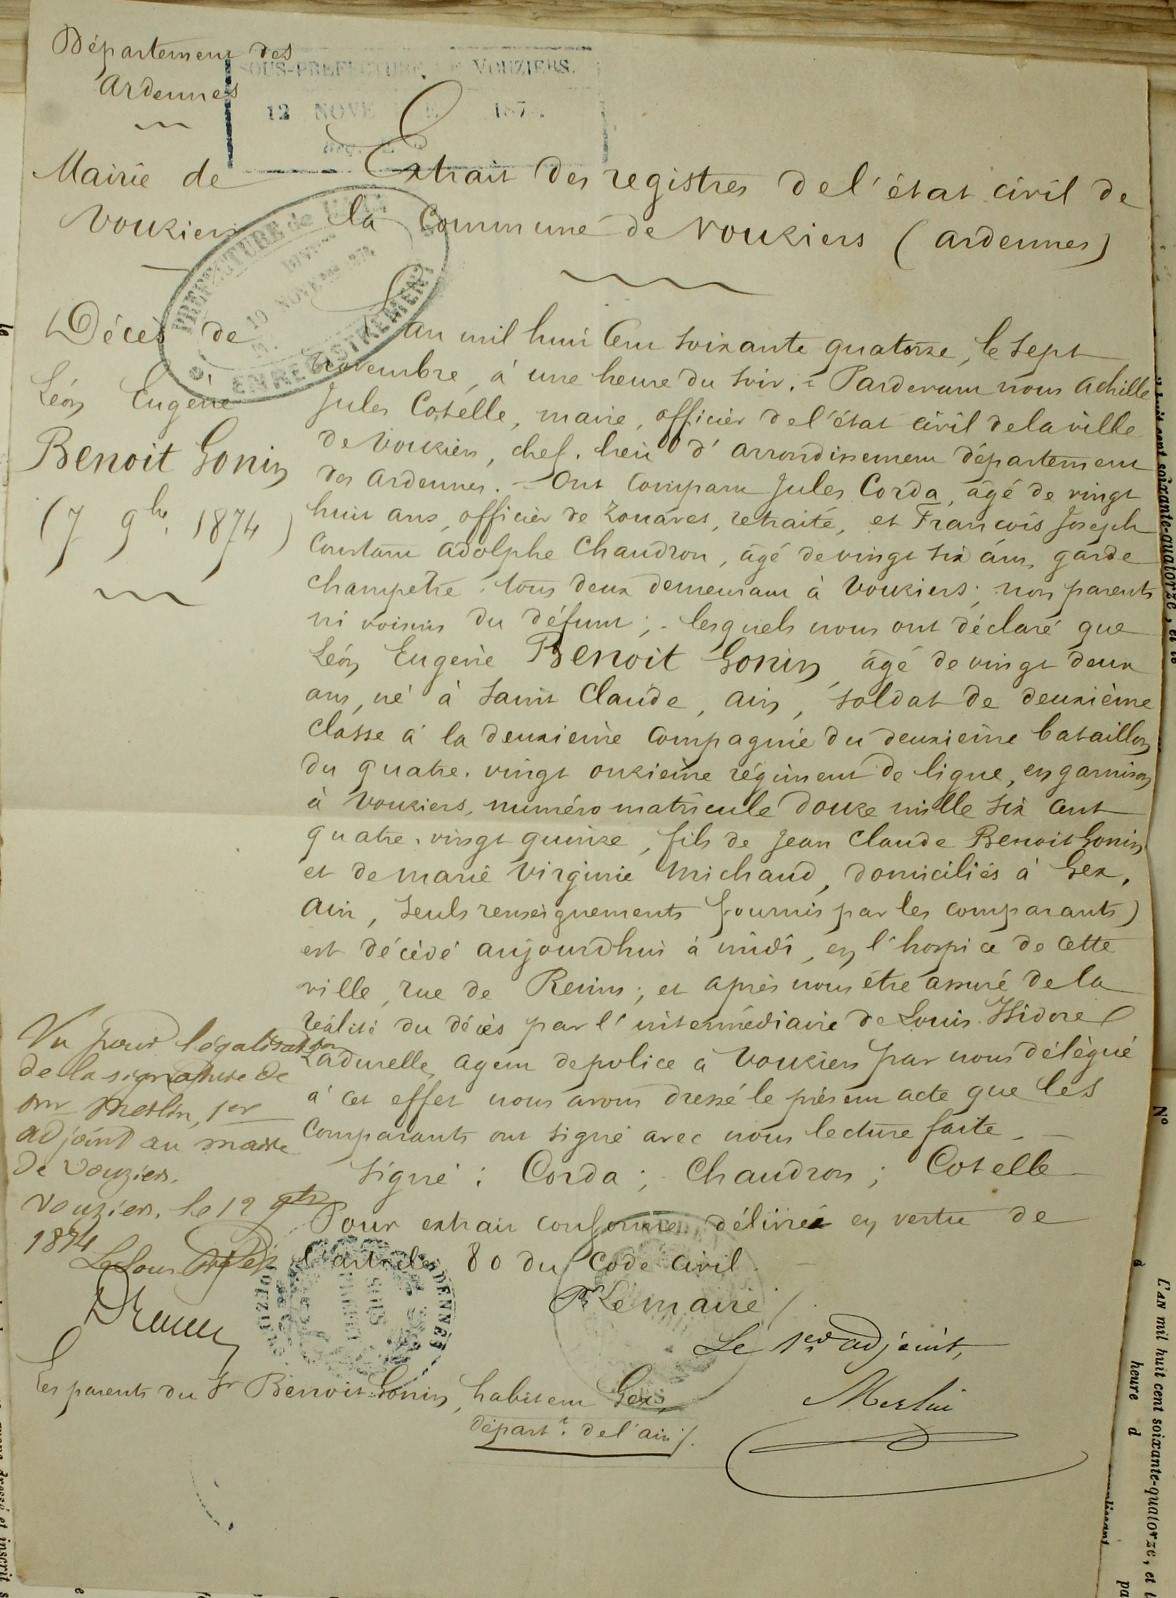 Département des
Ardennes
SOUS-PREFECTURE DE VOUZIERS.
12 NOVE 187
Mairie de
Vouziers
Extrait des registres de l'état civil de
la Commune de Vouziers (Ardennes)
PREFECTURE de l'AIN
19 NOVEM 74
ENREGISTREMENT
Décès de
Léon Eugène
Benoit Gonin
(7 9bre 1874)
L'an mil huit cent soixante quatorze, le sept
novembre, à une heure du soir. = Pardevant nous Achille
Jules Cotelle, maire, officier de l'état civil de la ville
de Vouziers, chef-lieu d'arrondissement département
des Ardennes. - Ont comparu Jules Corda, âgé de vingt
huit ans, officier de Zouaves, retraité, et François Joseph
Constant Adolphe Chaudron, âgé de vingt six ans, garde
champetre, tous deux demeurant à Vouziers; non parents
ni voisins du défunt; - lesquels nous ont déclaré que
Léon Eugène Benoit Gonin, âgé de vingt deux
ans, né à Saint Claude, Ain, soldat de deuxième
classe à la deuxième compagnie du deuxième bataillon
du quatre-vingt onzième régiment de ligne, en garnison
à Vouziers, numéro matricule douze mille six cent
quatre-vingt quinze, fils de Jean Claude Benoit Gonin
et de Marie Virginie Michaud, domiciliés à Gex,
Ain, seuls renseignements fournis par les comparants)
est décédé aujourd'hui à midi, en l'hospice de cette
ville, rue de Reims; et après nous être assuré de la
réalité du décès par l'intermédiaire de Louis Isidore
Ladurelle, agent de police à Vouziers par nous délégué
à cet effet nous avons dressé le présent acte que les
comparants ont signé avec nous lecture faite. -
Signé: Corda; Chaudron; Cotelle
Pour extrait conforme délivré en vertu de
l'article 80 du Code civil.
Pr Le maire
Le 1er adjoint,
Merlin
Vu pour légalisation
de la signature de
mr Merlin, 1er
adjoint au maire
de Vouziers.
Vouziers, le 12 9bre
1874
Le Sous Préfet
SOUS
PREFET
ARDENNES
Les parents du Sr Benoit Gonin, habitent Gex,
départt. de l'ain/.
soixante-quatorze, et le
N°
L'AN mil huit cent soixante-quatorze, et l
à
heure d
pa
dressé et inscrit s